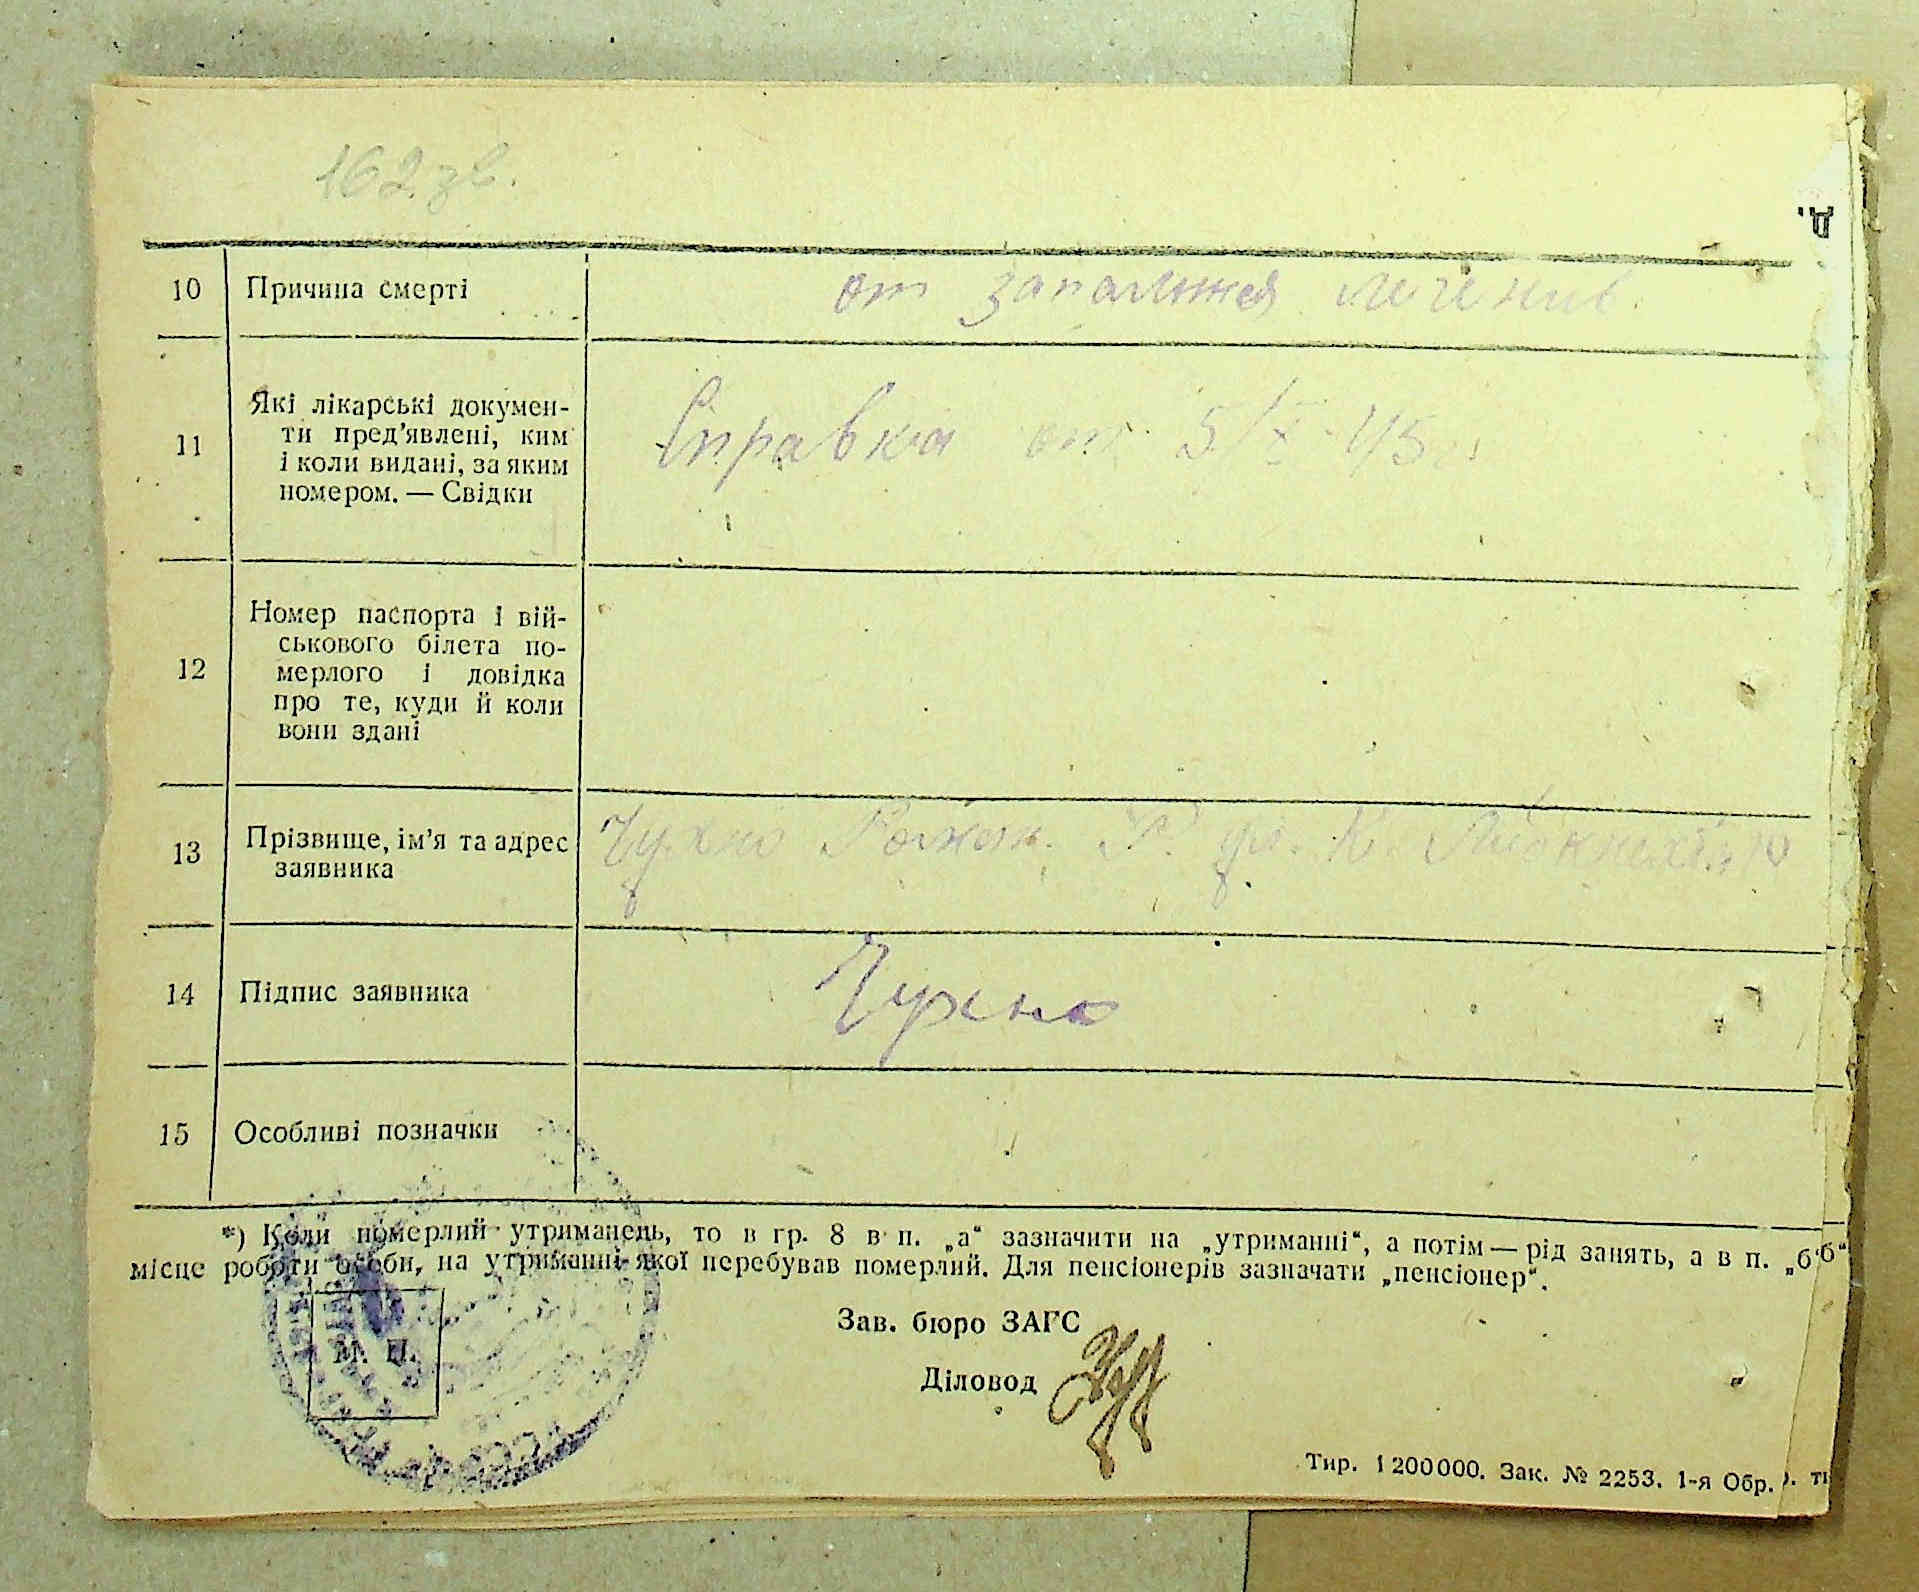 162 зв.
10 Причина смерті от запаления
11 Які лікарські докумен-
ти пред'явлені, ким
і коли видані, за яким
номером. — Свідки
Справка от 5/X-45 г.
12 Номер паспорта і вій-
ськового білета по-
мерлого і довідка
про те, куди й коли
вони здані
13 Прізвище, ім'я та адрес
заявника
Чухно
14 Підпис заявника Чухно
15 Особливі позначки
*) Коли померлий утриманець, то в гр. 8 в п. „а“ зазначити на „утриманні“, а потім — рід занять, а в п. „б“
місце роботи особи, на утриманні якої перебував померлий. Для пенсіонерів зазначати „пенсіонер“.
Зав. бюро ЗАГС
М. П.
Діловод
Тир. 1 200 000. Зак. № 2253. 1-я Обр.